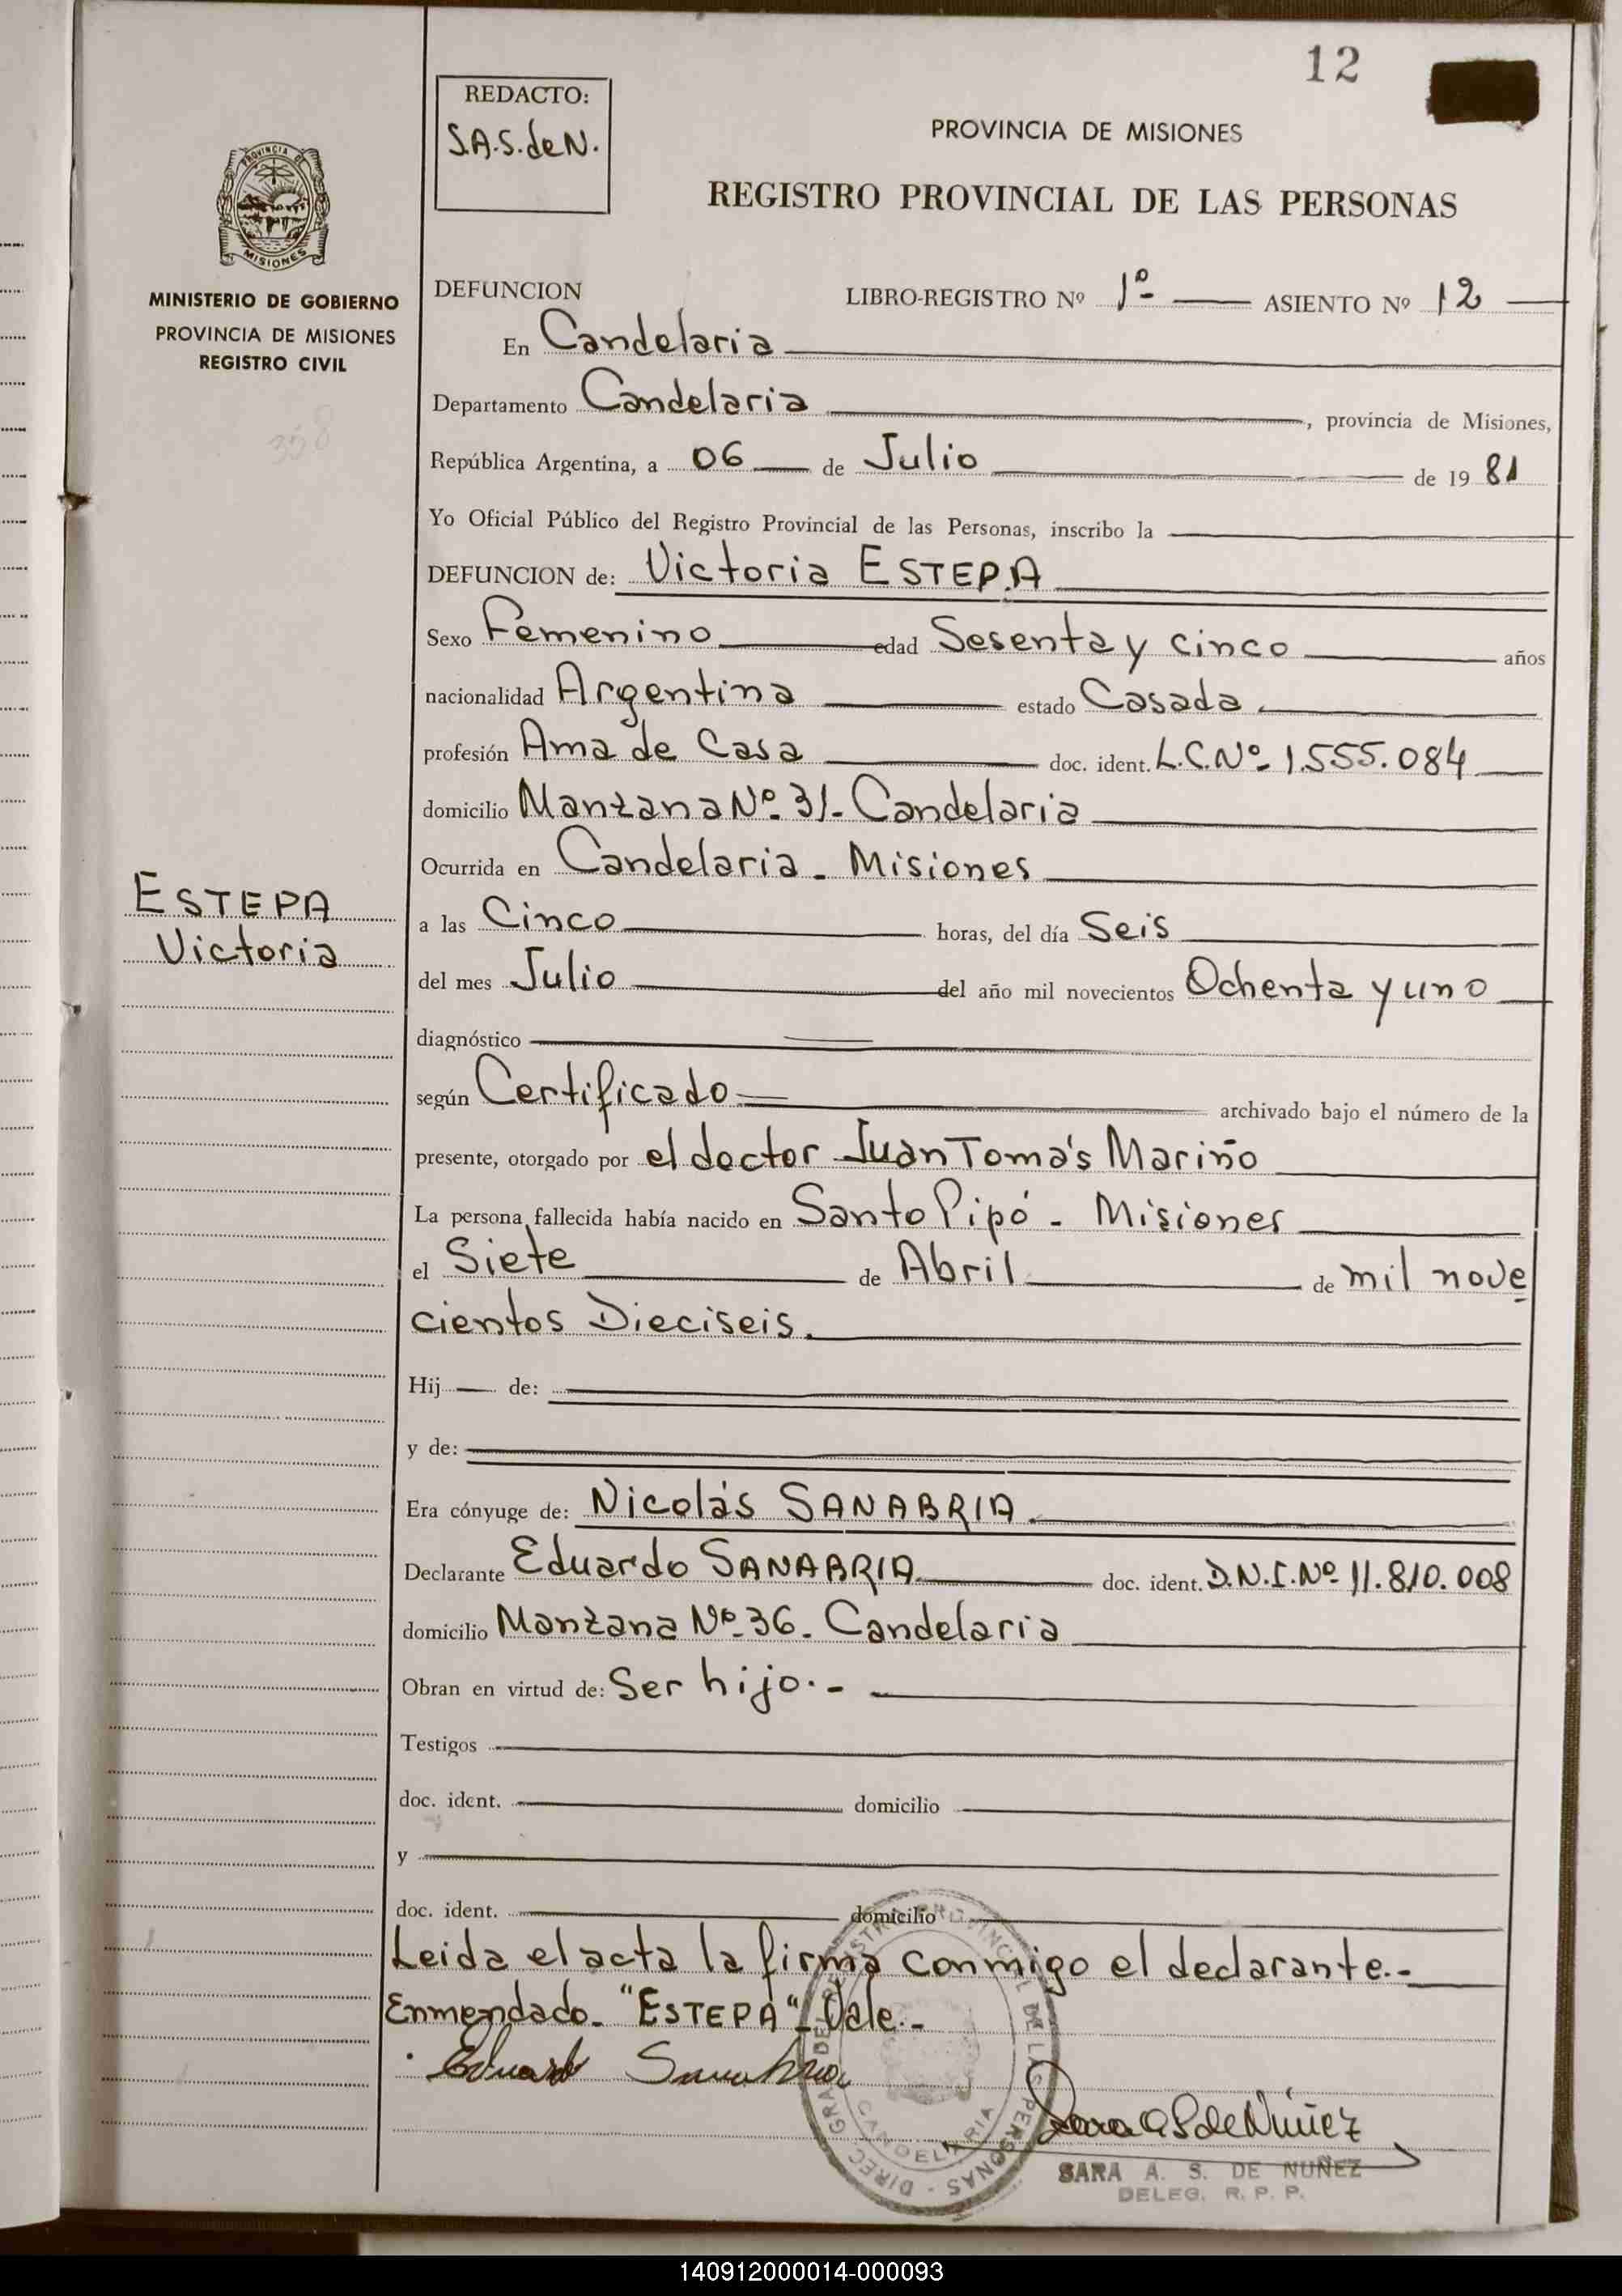 12
REDACTO:
S.A.S. de N.
PROVINCIA DE MISIONES
REGISTRO PROVINCIAL DE LAS PERSONAS
PROVINCIA DE
MISIONES
MINISTERIO DE GOBIERNO
PROVINCIA DE MISIONES
REGISTRO CIVIL
358
DEFUNCION LIBRO-REGISTRO Nº 1º- ASIENTO Nº 12
En Candelaria
Departamento Candelaria, provincia de Misiones,
República Argentina, a 06 de Julio de 1981
Yo Oficial Público del Registro Provincial de las Personas, inscribo la
DEFUNCION de: Victoria ESTEPA
Sexo Femenino edad Sesenta y cinco años
nacionalidad Argentina estado Casada.
profesión Ama de Casa doc. ident. L.C.Nº 1.555.084
domicilio Manzana Nº 31- Candelaria
Ocurrida en Candelaria - Misiones
ESTEPA
Victoria
a las Cinco horas, del día Seis
del mes Julio del año mil novecientos Ochenta y uno
diagnóstico
según Certificado archivado bajo el número de la
presente, otorgado por el doctor Juan Tomás Mariño
La persona fallecida había nacido en Santo Pipó - Misiones
el Siete de Abril de mil nove
cientos Dieciseis.
Hij de:
y de:
Era cónyuge de: Nicolás SANABRIA.
Declarante Eduardo SANABRIA doc. ident. D.N.I.Nº 11.810.008
domicilio Manzana Nº 36. Candelaria
Obran en virtud de: Ser hijo.-
Testigos
doc. ident. domicilio
y
doc. ident. domicilio
Leida el acta la firma conmigo el declarante.-
Enmendado. "ESTEPA" Vale.-
Eduardo Sanabria
Sara A S de Núñez
SARA A. S. DE NUÑEZ
DELEG. R. P. P.
CANDELARIA
140912000014-000093